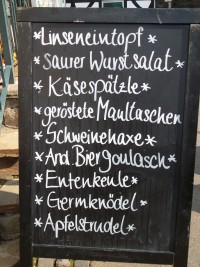 *Linseneintopf*
*saurer Wurstsalat*
*Käsespätzle*
*geröstete Maultaschen
*Schweinehaxe*
*And. Biergoulasch*
*Entenkeule*
*Germknödel*
*Apfelstrudel*